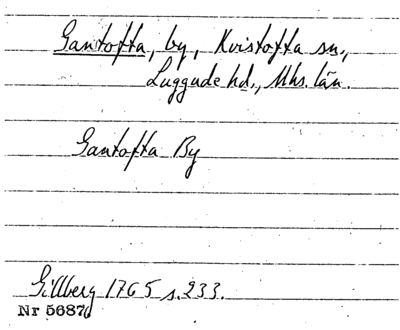 Gantofta, by, Kvistofta sn.,
Luggude hd., Mhs. län.
Gantofta By
Gillberg 1765 s. 233.
Nr 5687